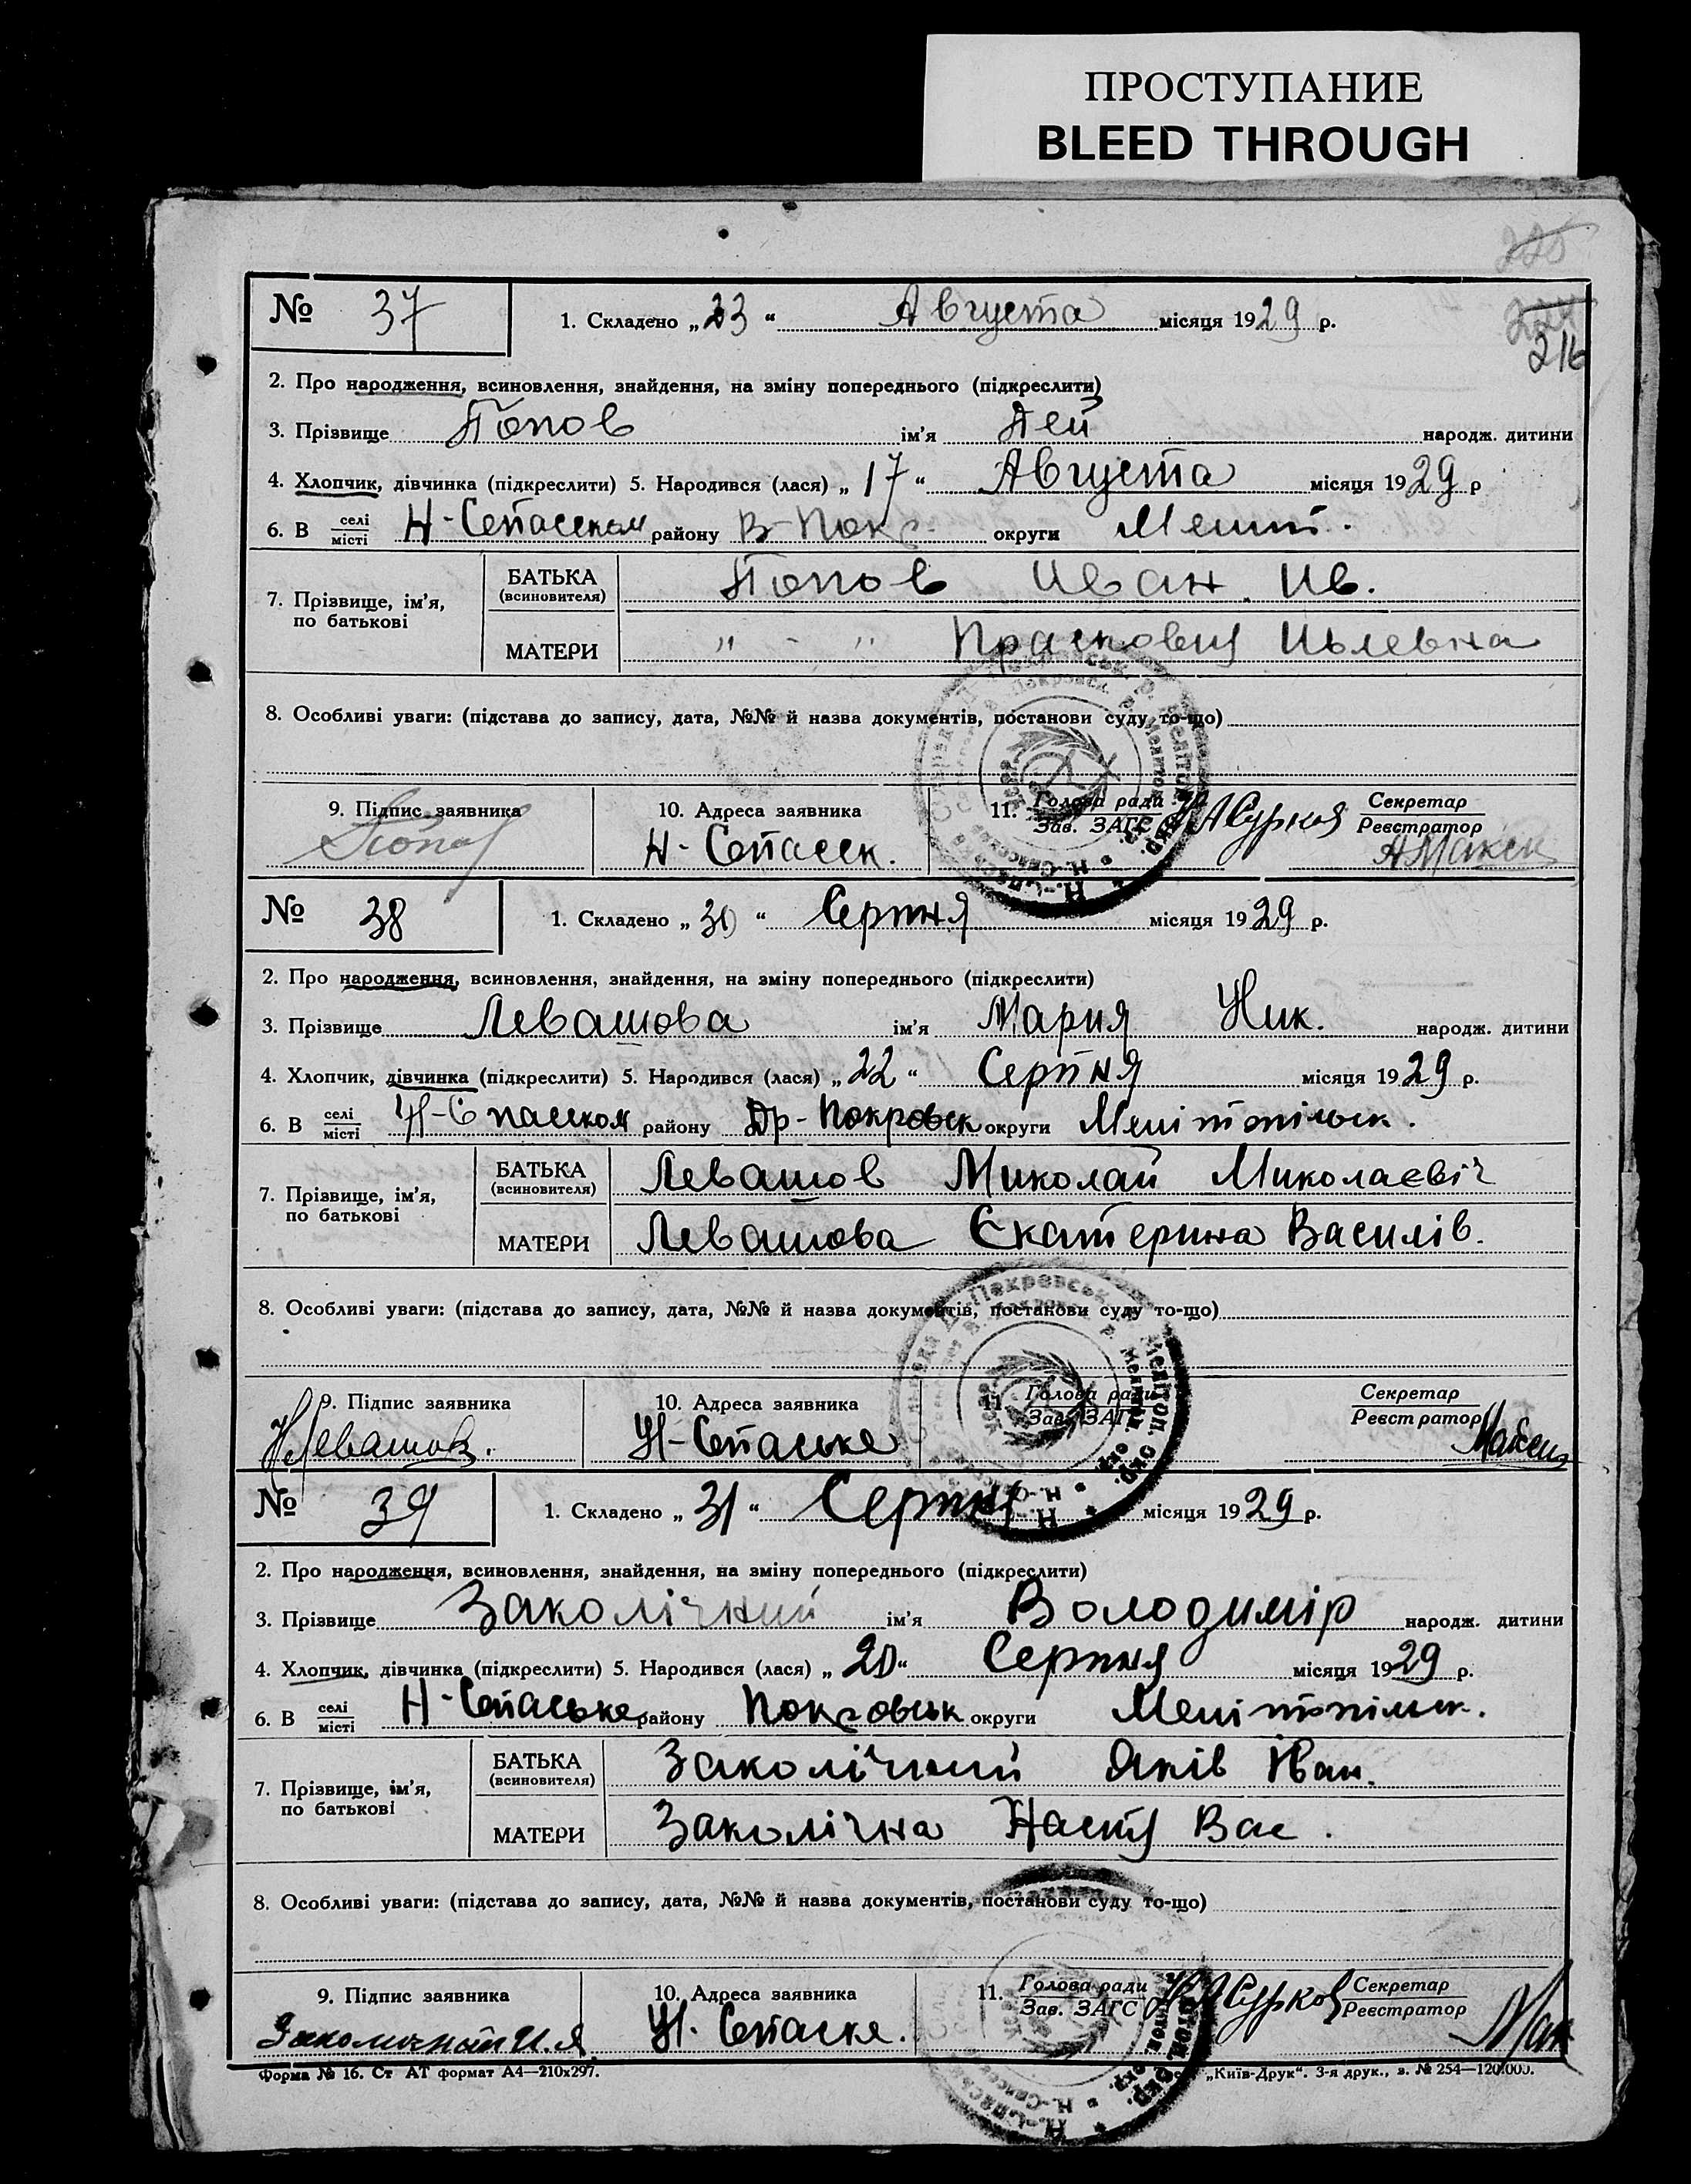 ПРОСТУПАНИЕ
BLEED THROUGH
225
224
216
№ 37 1. Складено „23“ Августа місяця 1929 р.
2. Про народження, всиновлення, знайдення, на зміну попереднього (підкреслити)
3. Прізвище Попов ім'я народж. дитини
4. Хлопчик, дівчинка (підкреслити) 5. Народився (лася) „17“ Августа місяця 1929 р
6. В селі місті Н-Спасском району В-Покр округи Мелит.
7. Прізвище, ім'я, по батькові БАТЬКА (всиновителя) Попов Иван Ив.
МАТЕРИ " - " Прасковия
8. Особливі уваги: (підстава до запису, дата, №№ й назва документів, постанови суду то-що)
9. Підпис заявника 10. Адреса заявника 11. Голова ради Зав. ЗАГС Сурков Секретар Реєстратор
Попов Н-Спасск. 
№ 38 1. Складено „30“ Серпня місяця 1929 р.
2. Про народження, всиновлення, знайдення, на зміну попереднього (підкреслити)
3. Прізвище Левашова ім'я Мария Ник. народж. дитини
4. Хлопчик, дівчинка (підкреслити) 5. Народився (лася) „22“ Серпня місяця 1929 р.
6. В селі місті Н-Спасском району Покровск округи Мелітопільск.
7. Прізвище, ім'я, по батькові БАТЬКА (всиновителя) Левашов Миколай Миколаєвіч
МАТЕРИ Левашова Екатерина Василів.
8. Особливі уваги: (підстава до запису, дата, №№ й назва документів, постанови суду то-що)
9. Підпис заявника 10. Адреса заявника 11. Голова ради Зав. ЗАГС Секретар Реєстратор
Н Левашов. Н-Спаське
№ 39 1. Складено „31“ Серпня місяця 1929 р.
2. Про народження, всиновлення, знайдення, на зміну попереднього (підкреслити)
3. Прізвище Заколічний ім'я Володимір народж. дитини
4. Хлопчик, дівчинка (підкреслити) 5. Народився (лася) „20“ Серпня місяця 1929 р.
6. В селі місті Н-Спаське району Покровськ округи Мелітопільск.
7. Прізвище, ім'я, по батькові БАТЬКА (всиновителя) Заколічний Яків Іван.
МАТЕРИ Заколічна Настя Вас.
8. Особливі уваги: (підстава до запису, дата, №№ й назва документів, постанови суду то-що)
9. Підпис заявника 10. Адреса заявника 11. Голова ради Зав. ЗАГС Сурков Секретар Реєстратор
Н. Спаске.
Форма № 16. Ст АТ формат А4—210х297. „Київ-Друк“. 3-я друк., з. № 254—120.000.